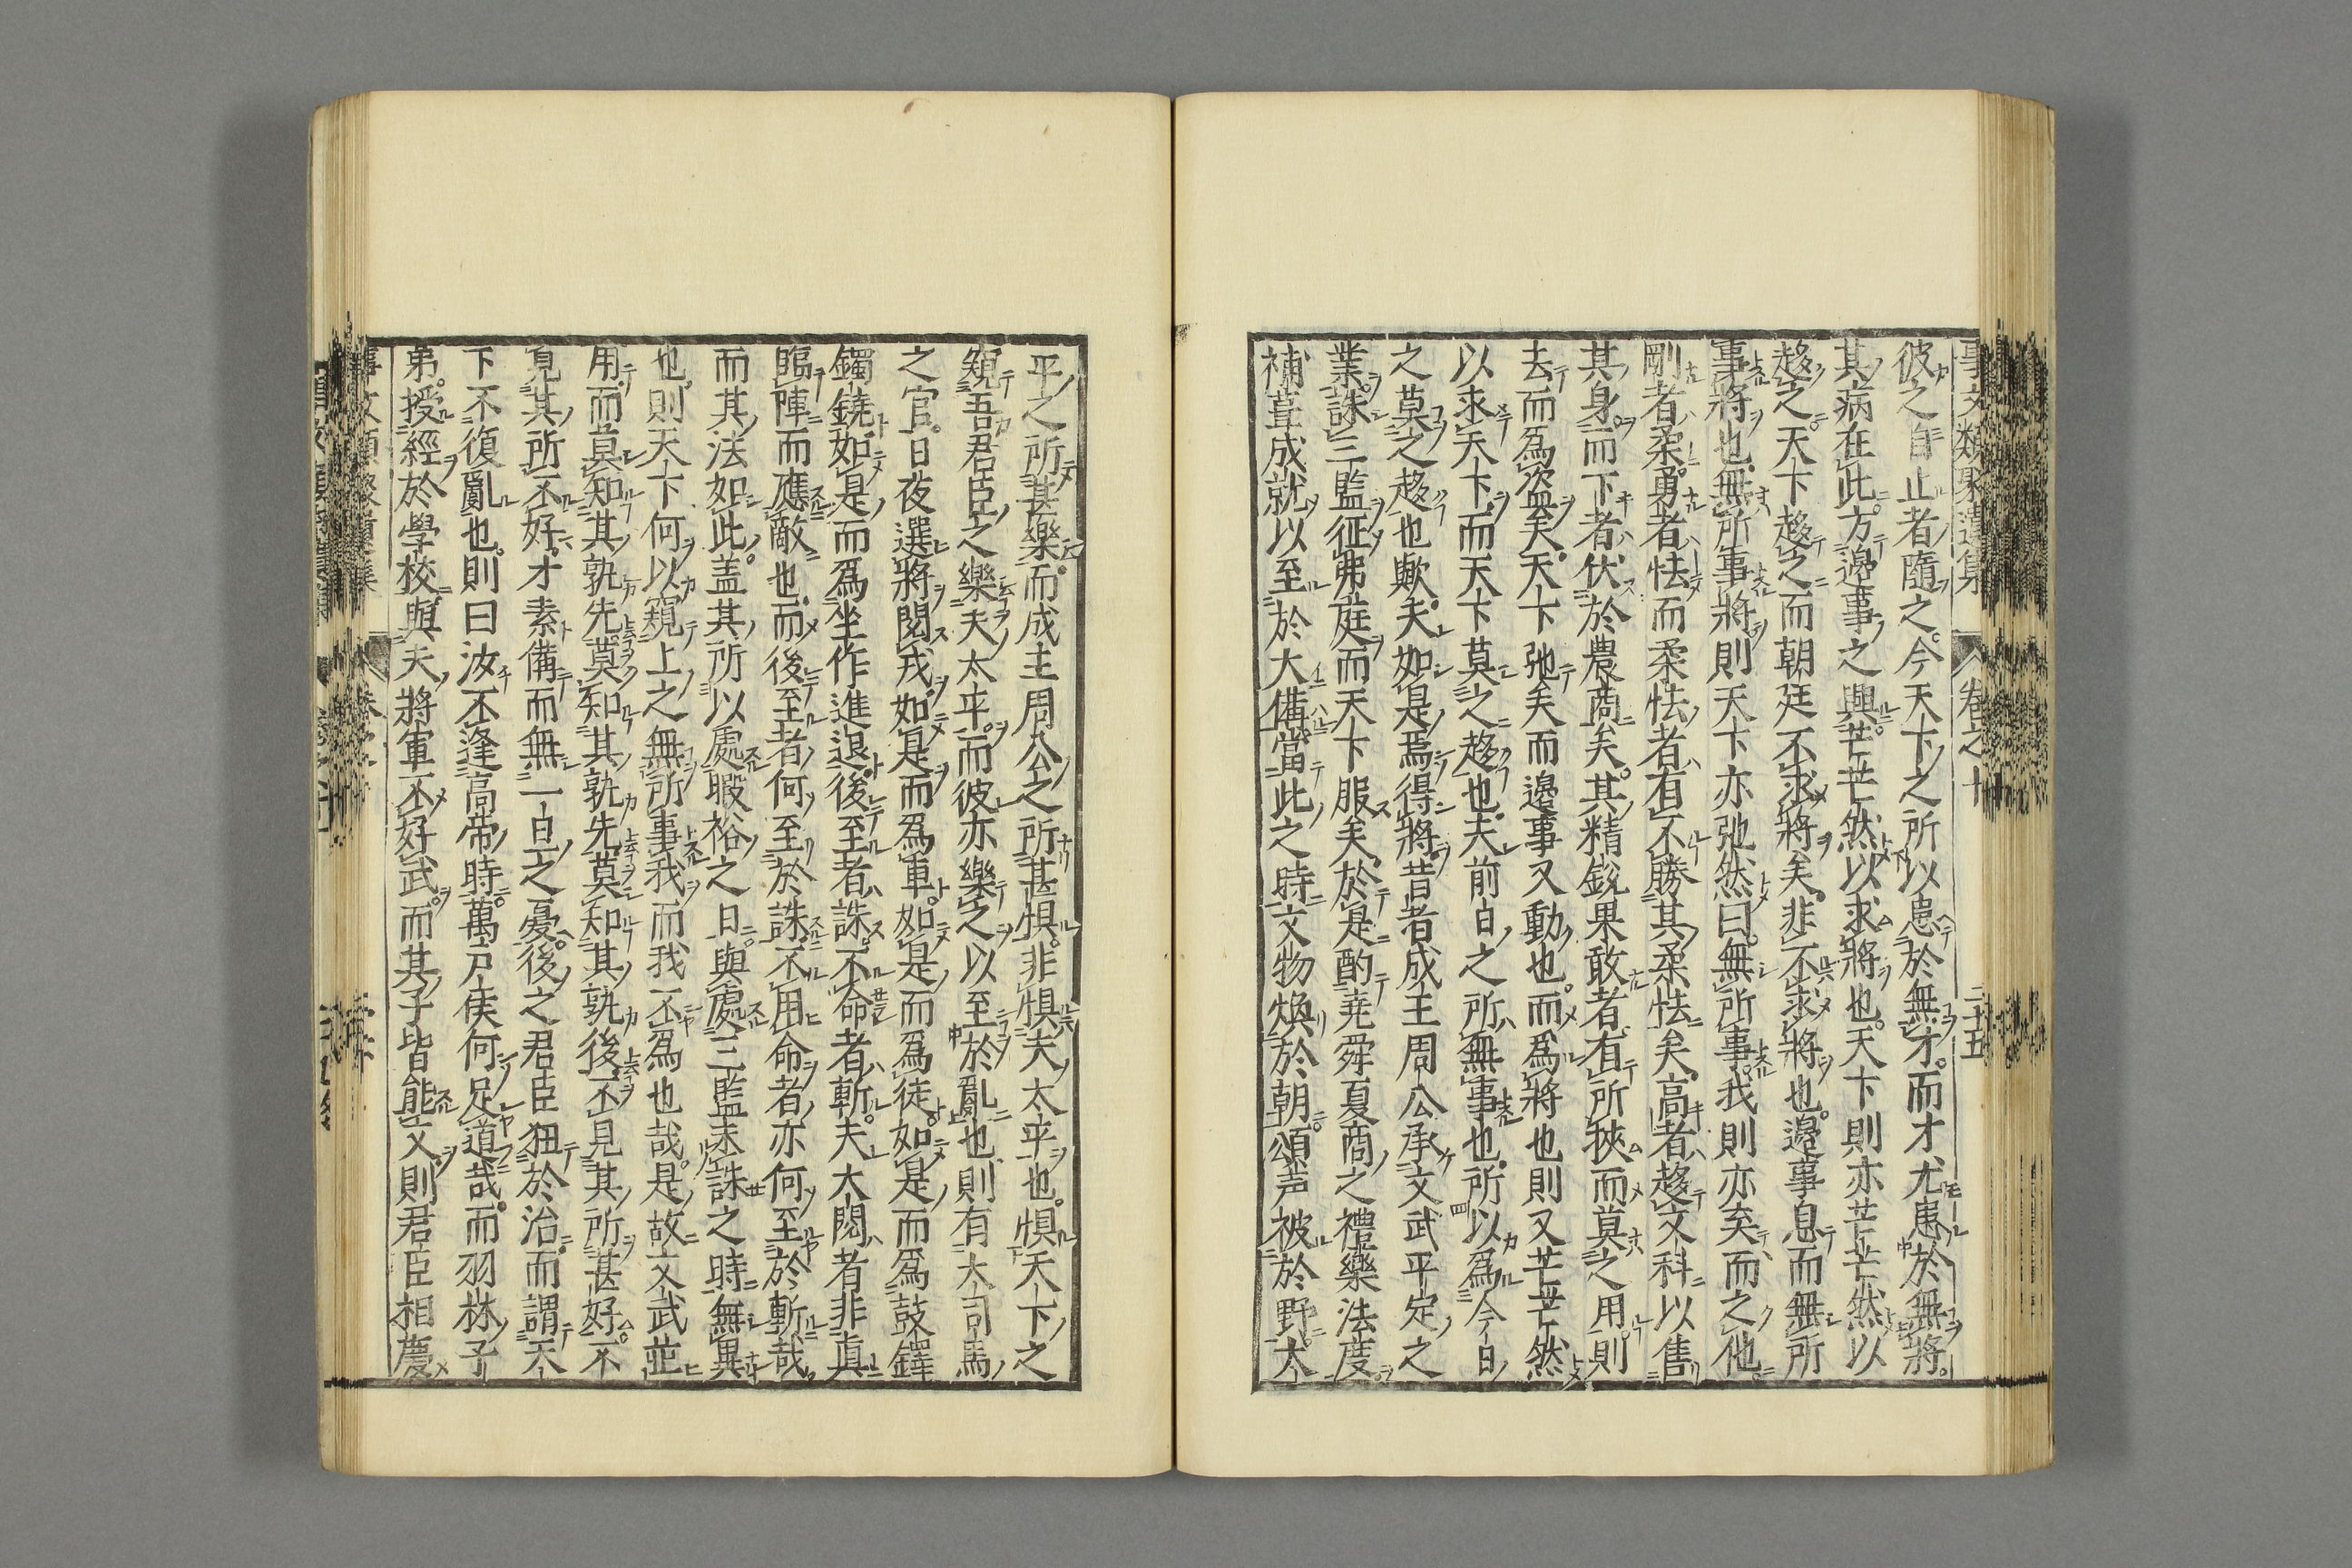 事文類聚遺集 卷之十 三十五
彼之自止者隨之今天下之所以患於無才而才尤患於無將
其病在此方邉事之興芒芒然以求將也天下則亦芒芒然以
趍之天下趍之而朝廷不求將矣非不求將也邉事息而無所
事將也無所事將則天下亦弛然曰無所事我則亦矣而之他
剛者柔勇者怯而柔怯者有不勝其柔怯矣高者趍文科以售
其身而下者伏於農商矣其精銳果敢者有所挾而莫之用則
去而為盗矣天下弛矣而邉事又動也而為將也則又芒芒然
以求天下而天下莫之趍也夫前日之所無事也所以為今日
之莫之趍也歟夫如是焉得將昔者成王周公承文武平定之
業誅三監征弗庭而天下服矣於是酌堯舜夏商之禮樂法度
補葺成就以至於大備當此之時文物煥於朝頌声被於野太
平之所甚樂而成王周公之所甚惧非惧夫太平也惧天下之
窺吾君臣之樂夫太平而彼亦樂之以至於亂也則有大司馬
之官日夜選將閲戎如是而為軍如是而為徒如是而為鼓鐸
鐲鐃如是而為坐作進退後至者誅不命者斬夫大閲者非真
臨陣而應敵也而後至者何至於誅不用命者亦何至於斬哉
而其法如此盖其所以處暇裕之日與處三監未誅之時無異
也則天下何以窺上之無所事我而我不為也哉是故文武並
用而莫知其孰先莫知其孰先莫知其孰後不見其所甚好不
見其所不好才素備而無一旦之憂後之君臣狃於治而謂天
下不復亂也則曰汝不逢高帝時萬戸侯何足道哉而羽林子
弟授經於學校與夫將軍不好武而其子皆能文則君臣相慶